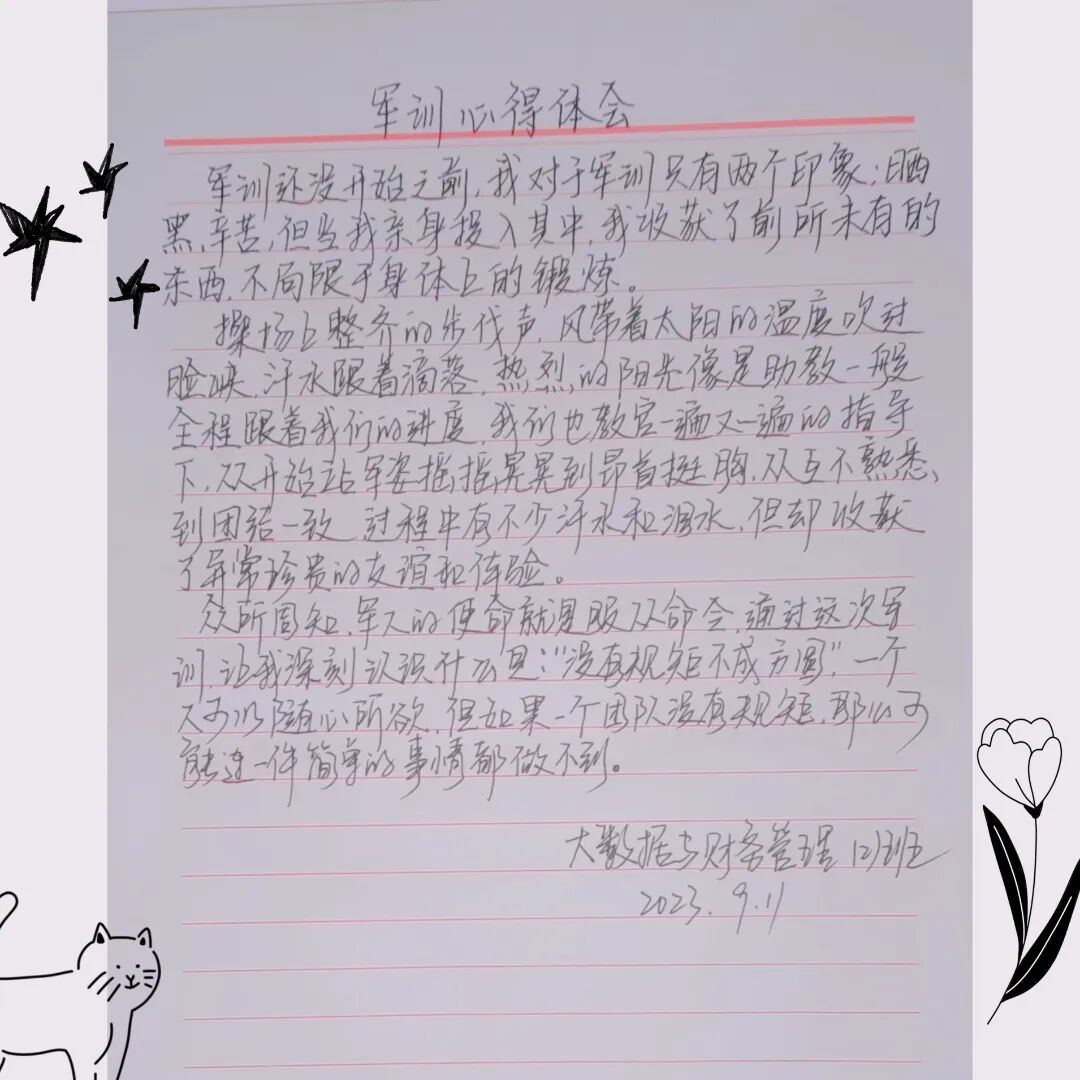 军训心得体会
军训还没开始之前,我对于军训只有两个印象:晒
黑,辛苦,但当我亲身投入其中,我收获了前所未有的
东西,不局限于身体上的锻炼。
操场上整齐的步伐声,风带着太阳的温度吹过
脸颊,汗水跟着滴落,热烈的阳光像是助教一般
全程跟着我们的进度,我们也教官一遍又一遍的指导
下,从开始站军姿摇摇晃晃到昂首挺胸,从互不熟悉、
到团结一致,过程中有不少汗水和泪水,但却收获
了异常珍贵的友谊和体验。
众所周知,军人的使命就是服从命令,通过这次军
训,让我深刻认识什么是:“没有规矩不成方圆”,一个
人可以随心所欲,但如果一个团队没有规矩,那么可
能连一件简单的事情都做不到。
大数据与财务管理班
2023.9.11